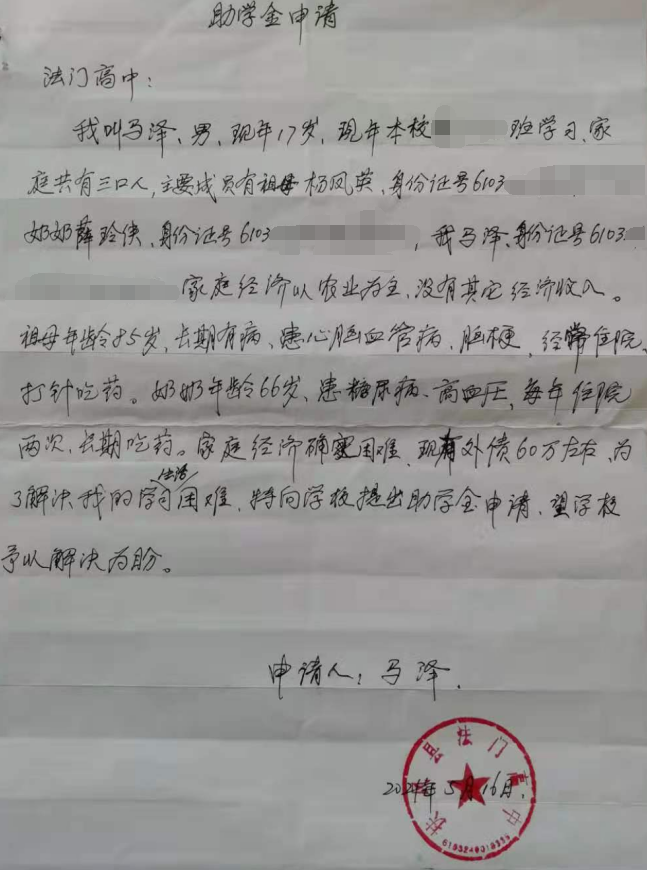 助学金申请
法门高中：
我叫马泽、男、现年17岁、现年本校班学习、家
庭共有三口人,主要成员有祖母杨凤英、身份证号6103
奶奶薛玲侠、身份证号6103，我马泽、身份证号6103
家庭经济以农业为主、没有其它经济收入。
祖母年龄85岁、长期有病、患心脑血管病、脑梗，经常住院、
打针吃药。奶奶年龄66岁、患糖尿病、高血压，每年住院
两次、长期吃药。家庭经济确实困难、现有外债60万左右、为
生活
了解决我的学习困难、特向学校提出助学金申请、望学校
予以解决为盼。
申请人：马泽.
5月16日.
扶 县法门高中